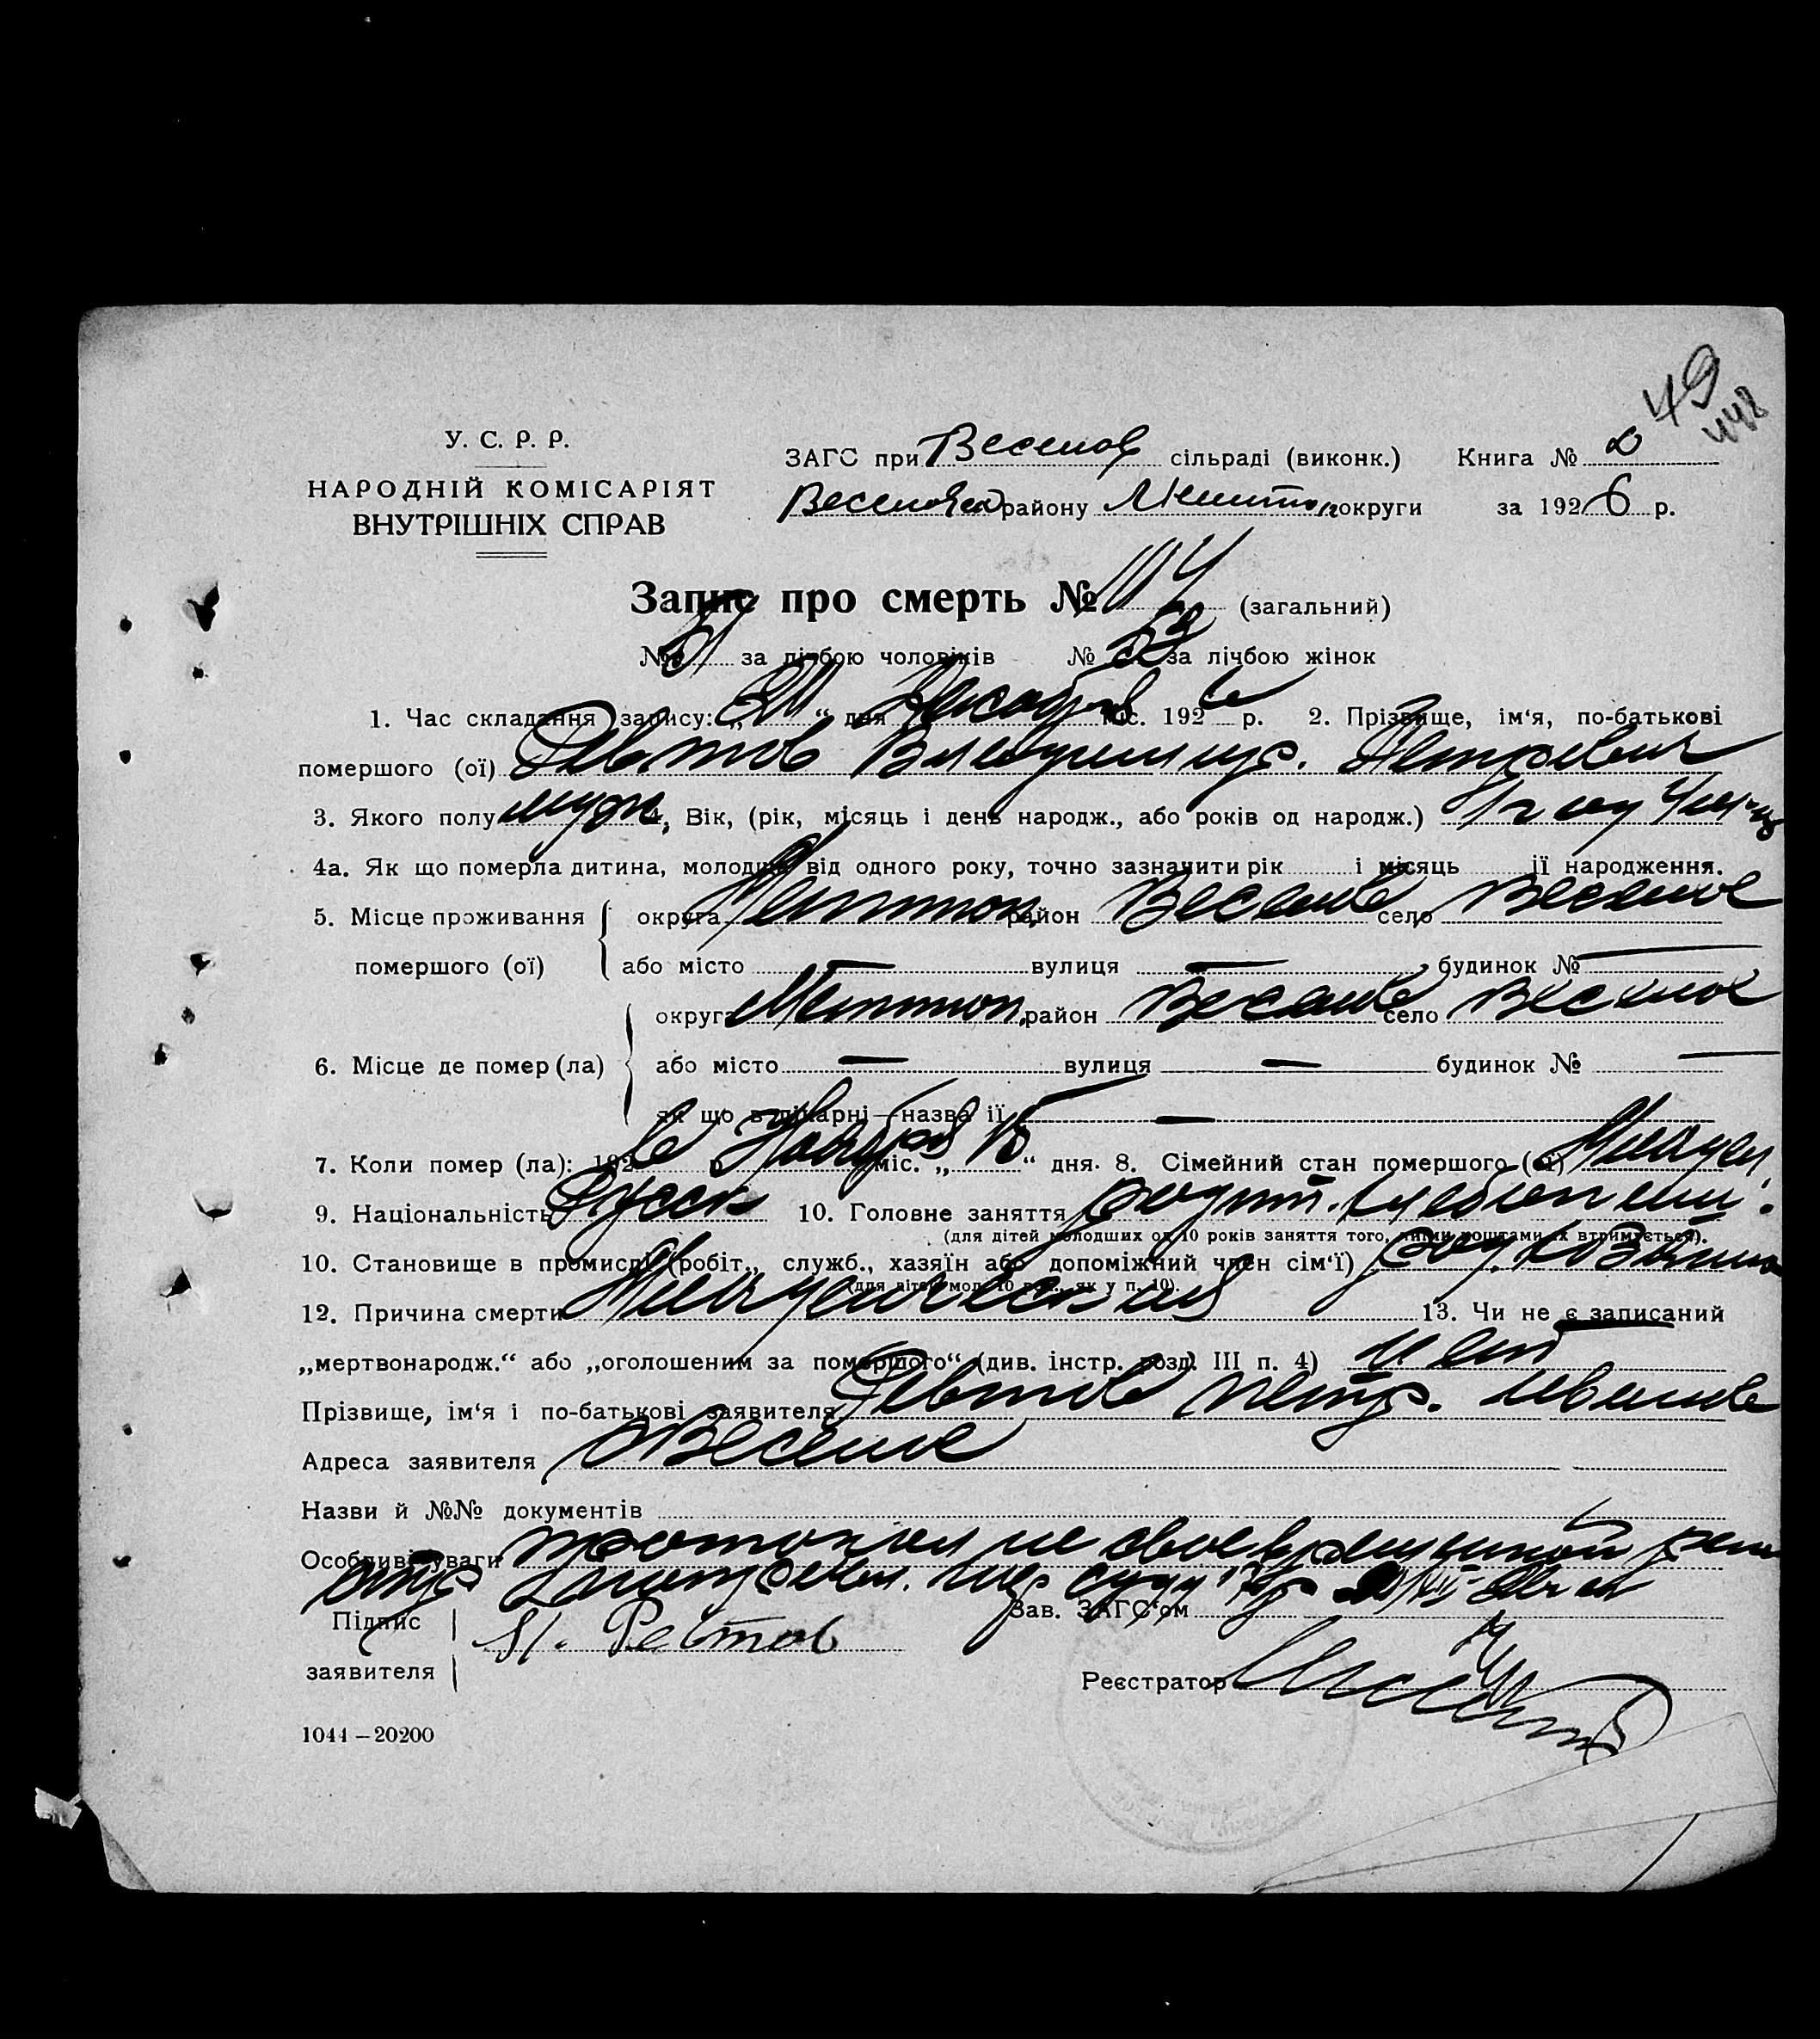 49
448
У. С. Р. Р.
НАРОДНІЙ КОМІСАРІЯТ
ВНУТРІШНІХ СПРАВ
ЗАГС при Веселов сільраді (виконк.) Книга №
району округи за 1926 р.
Запис про смерть № 114 (загальний)
№ 51 за лічбою чоловіків № за лічбою жінок
1. Час складання запису: „ “ дня Декабря міс. 1926 р. 2. Прізвище, ім‘я, по-батькові
помершого (ої) Ревтов Владимир. Петрович
3. Якого полу муж 4. Вік, (рік, місяць і день народж., або років од народж.) 1 год
4а. Як що померла дитина, молодша від одного року, точно зазначити рік і місяць ії народження.
5. Місце проживання округа район село Веселое
помершого (ої) або місто — вулиця — будинок № —
округа Мелитоп. район село Веселое
6. Місце де помер (ла) або місто — вулиця — будинок № —
як що в лікарні—назва ії —
7. Коли помер (ла): 1926 р Ноября міс. „15“ дня. 8. Сімейний стан помершого (ої)
9. Національність Русск 10. Головне заняття родит. хлебопаш.
(для дітей молодших од 10 років заняття того, чиїми коштами їх втримується).
10. Становище в промислі (робіт., служб., хазяїн або допоміжний член сім‘ї) род. хозяин
(для дітей мол. 10 рок., як у п. 10).
12. Причина смерти 13. Чи не є записаний
„мертвонародж.“ або „оголошеним за помершого“ (див. інстр. розд. III п. 4) нет
Прізвище, ім‘я і по-батькові заявителя Ревтов Петр. Иванов
Адреса заявителя Веселое
Назви й №№ документів
Особливі уваги протокол не своевременной реги
Підпис Зав. ЗАГС‘ом
П. Ревтов
заявителя Реєстратор
1044 – 20200